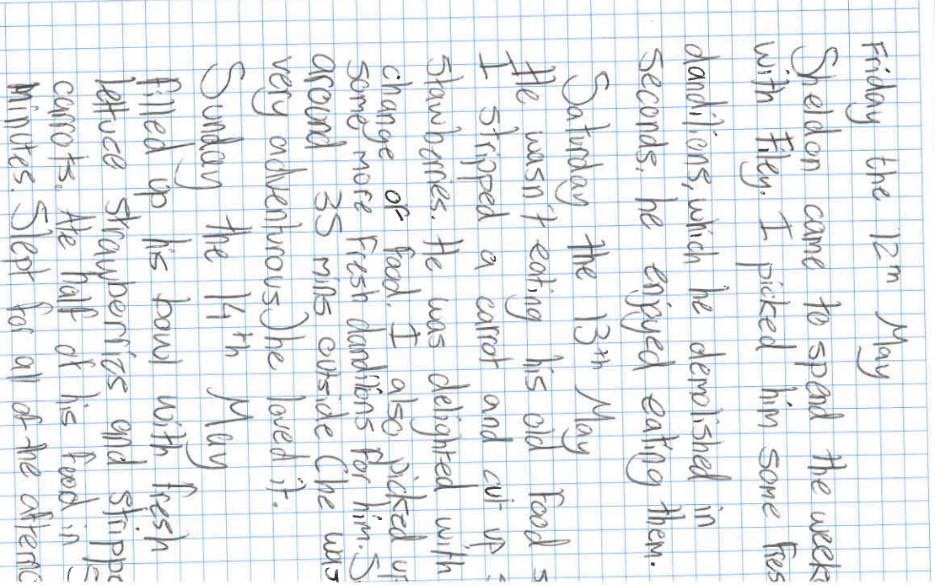 Friday the 12th May
Sheldon came to spend the week
with Filey. I picked him some fres
dandilions, which he demolished in
seconds, he enjoyed eating them.
Saturday the 13th May
He wasn't eating his old food s
I stripped a carrot and cut up s
stawberries. He was delighted with
change of food. I also picked u
some more fresh dandilions for him. S
around 35 mins outside (he was
very adventurous) he loved it.
Sunday the 14th May
filled up his bowl with fresh
lettuce strawberries and strippe
carrots. Ate half of his food in
minutes. Slept for all of the afterno